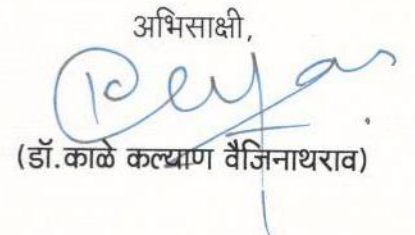 अभिसाक्षी,
(डॉ.काळे कल्याण वैजिनाथराव)